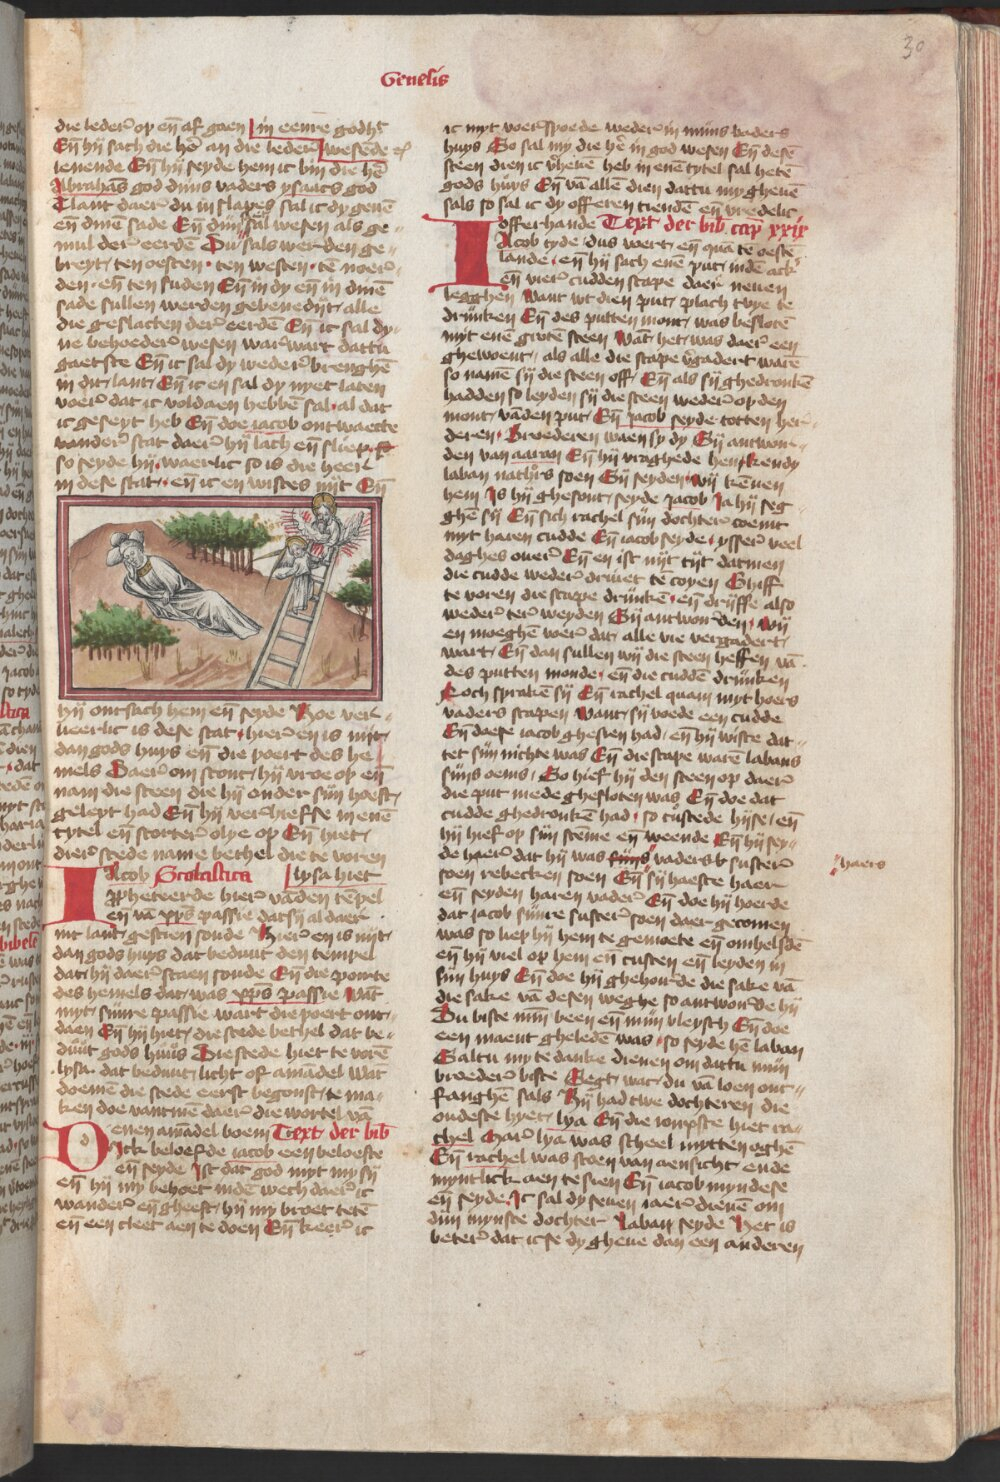 30
Genesis
die leder op en̄ af gaen Jn eenre godhꝭ
En̄ hy sach die he᷑ an die leder wesende
lenende En̄ hy seyde hem ic bin die hē
Abrahās god dÿns vaders ysaacs god
Tlant daer du in slapes sal ic dy geuē
en̄ dinē sade En̄ dyn sal wesen als ge-
mul der eerdē Du sals werden ge-
breyt ten oesten ten westen tē noer-
den en̄ ten suden En̄ in dy en̄ in dinē
sade sullen werden gebenedÿt alle
die geslacten der eerdē En̄ ic sal dy-
ne behoeder wesen war wart dattu
gaetste En̄ ic sal dy weder brenghē
in dit lant En̄ ic en sal dy nyet laten
voer dat ic voldaen hebbē sal al dat
ic geseyt heb En̄ doe iacob ontwaecte
vander stat daer hÿ lach en̄ sliep
so seyde hÿ waerlic so is die heer
in dese stat en̄ ic en wistes nÿt En̄
hÿ ontsach hem en̄ seyde Hoe ver-
veerlic is dese stat hier en is nÿt
dan gods huys en̄ die poert des he
mels Daer om stont hÿ vroe op en̄
nam die steen die hÿ onder sÿn hoeft
geleyt had En̄ hÿ verhieffe in enē
tytel en̄ storter olye op En̄ hiet
dier stede name bethel die te voren
Lysa hiet
Jacob Scolastica
Propheteerde hier vāden tēpel
en̄ vā xp̄s passie dat sÿ al daer
int lant gescien soude Hier en is nÿt
dan gods huys dat beduut den tempel
dat hÿ daer staen soude En̄ die poirte
des hemels dat was xp̄s passie Wāt
myt sÿnre passie wart die poert ont-
daen En̄ hÿ hiet die stede bethel dat be-
duut gods huus Die stede hiet te vorē
lysa dat beduut licht of amādel Wāt
doemē die stede eerst begonst te ma-
ken doe vantmē daer die wortel vā
enen amādel boem Text der bib
Dick beloefde iacob een beloefte
en̄ seyde Ist dat god myt my sÿ
en̄ hÿ my behoet indē wech daer ic
wander en̄ gheeft hÿ my broet tetē
en̄ een cleet aen te doen En̄ keer ic
ic myt voerspoede weder in mÿns vaders
huys So sal my die he᷑ in god wesen En̄ dese
steen dien ic vheuē heb in enē tytel sal hetē
gods huys En̄ vā allē dien dattu my gheuē
sals so sal ic dy offeren tiendē en̄ vredelic
offerhande Text der bib cap xxix
Jacob tyde dus voert en̄ quā te oestē
lande en̄ hÿ sach enē put indē acker
en̄ vier cudden scape daer neuen
legghen Want wt dien put plach tvye te
drincken En̄ des putten mont was beslotē
myt enē grotē steen Wāt het was daer een
ghewoent als alle die scape vgadert warē
so namē sÿ die steen off En̄ als sÿ ghedronckē
hadden so leyden sÿ die steen weder op den
mont vāden put En̄ jacob seyde totten her-
deren Broederen waen sy dy Sÿ antwor-
den van aaran En̄ hÿ vraghede hem kendy
laban nathors soen Sÿ seyden wÿ kēnen
hem Js hÿ ghesont seyde jacob Ja hÿ seg-
ghē sÿ En̄ sich rachel sÿn dochter coemt
myt haren cudde En̄ iacob seyde ysser veel
daghes ouer En̄ en ist nÿt tÿt datmen
die cudde weder drÿuet tē coyen Ghiff
te voren die scape drÿnkē en̄ drÿffe also
weder ter weyden Sÿ antworden Wÿ
en moeghē voer dat alle vie vergadert
wart En̄ dan sullen wÿ die steen heffen vā
des putten monde en̄ die cuddē drÿnken
Noch sprakē sÿ En̄ rachel quam myt hoers
vaders scapen Want sÿ voede een cudde
En̄ daese iacob ghesien had en̄ hÿ wiste dat-
tet sÿn nichte was En̄ die scape warē labans
sÿns oems So hief hÿ den steen op daer
die put mede ghesloten was En̄ doe dat
cudde ghedronkē had so custede hÿse en̄
hÿ hief op sÿn stēme en̄ weende En̄ hÿ sey-
de haer dat hÿ was sÿns vaders suster
haers
soen rebecken soen En̄ sÿ haeste haer
en̄ seyden haren vader En̄ doe hÿ hoerde
dat jacob sÿnre suster soen daer gecomen
was so liep hÿ hem te gemoete en̄ omhelsdē
en̄ hÿ viel op hem en̄ custen en̄ leyden in
sÿn huys En̄ doe hÿ ghehoirde die sake vā
die sake vā desen weghe so antworde hÿ
Du biste mÿn been en̄ mÿn vleysch En̄ doe
een maent gheledē was so seyde hē laban
Saltu my te danke dienen om dattu mÿn
broeder biste Segt wat du vā loen ont-
fanghē sals Hÿ had twe dochteren die
oudeste hyet lya En̄ die ionxste hiet ra-
chel Mar lya was scheel mytten oghē
En̄ rachel was scoen van aensicht ende
mynlick aen te sien En̄ iacob myndese
en̄ seyde Jc sal dy seuen iaer dienē om
dÿn mynste dochter Laban seyde Het is
beter dat ic se dy gheue dan een anderen